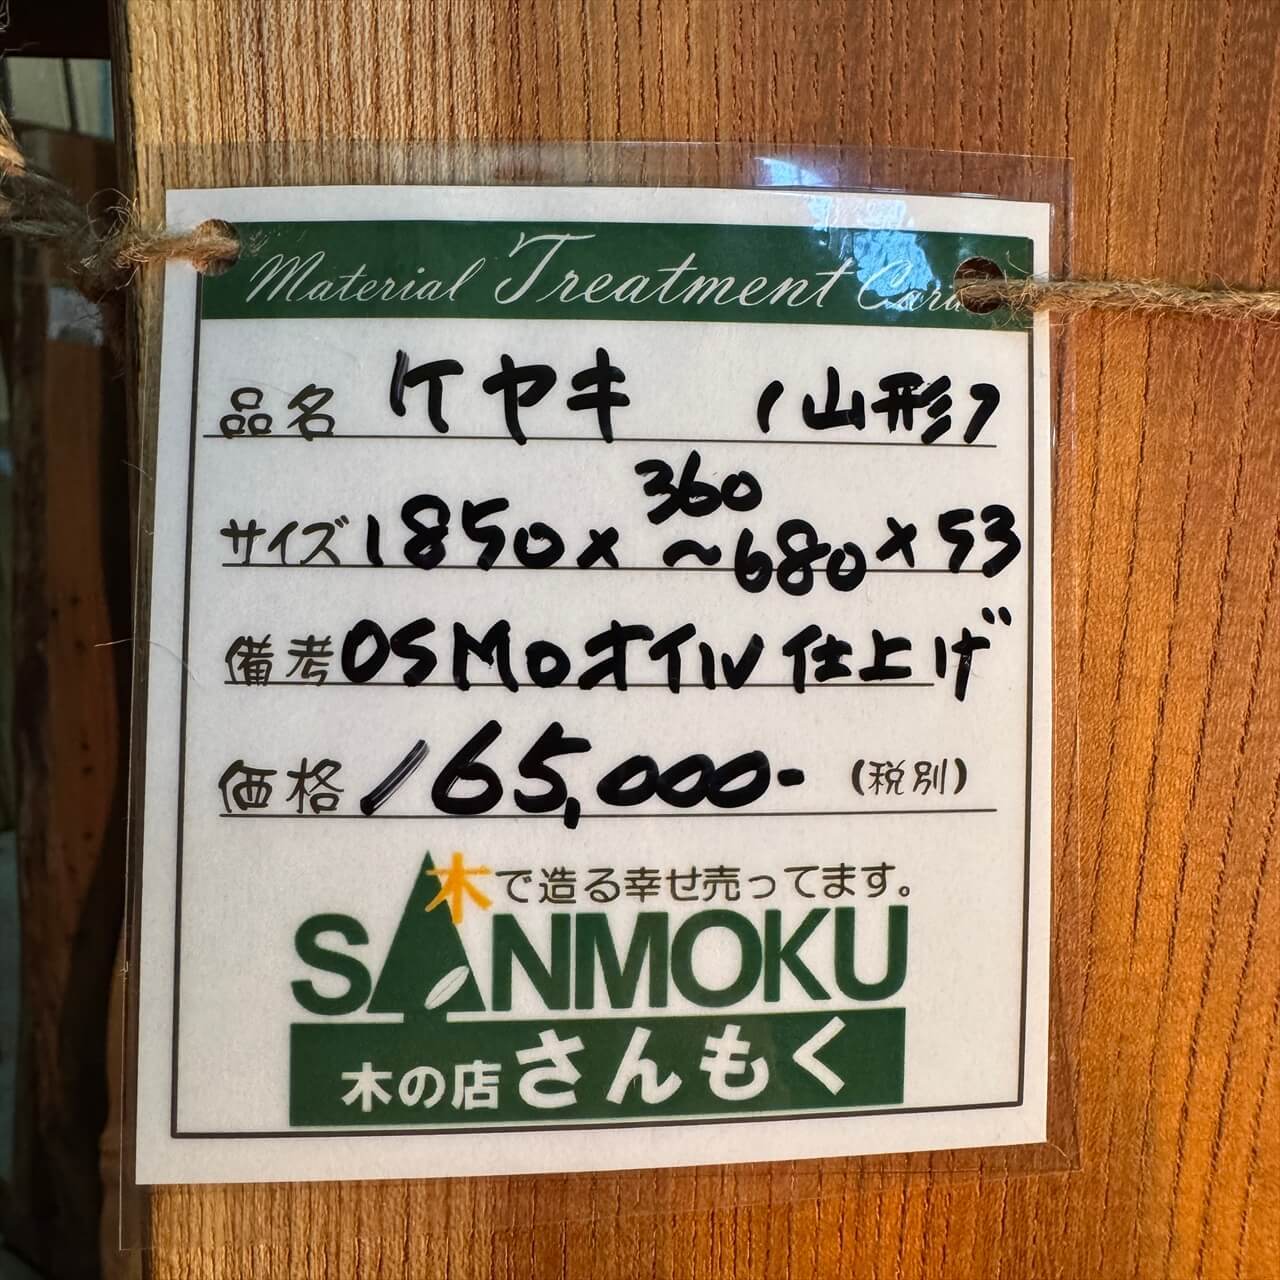 Material Treatment Card
品名 ケヤキ (山形)
サイズ 1850 × 360 ～680 × 53
備考 OSMOオイル仕上げ
価格 165,000- (税別)
木で造る幸せ売ってます。
SANMOKU
木の店 さんもく